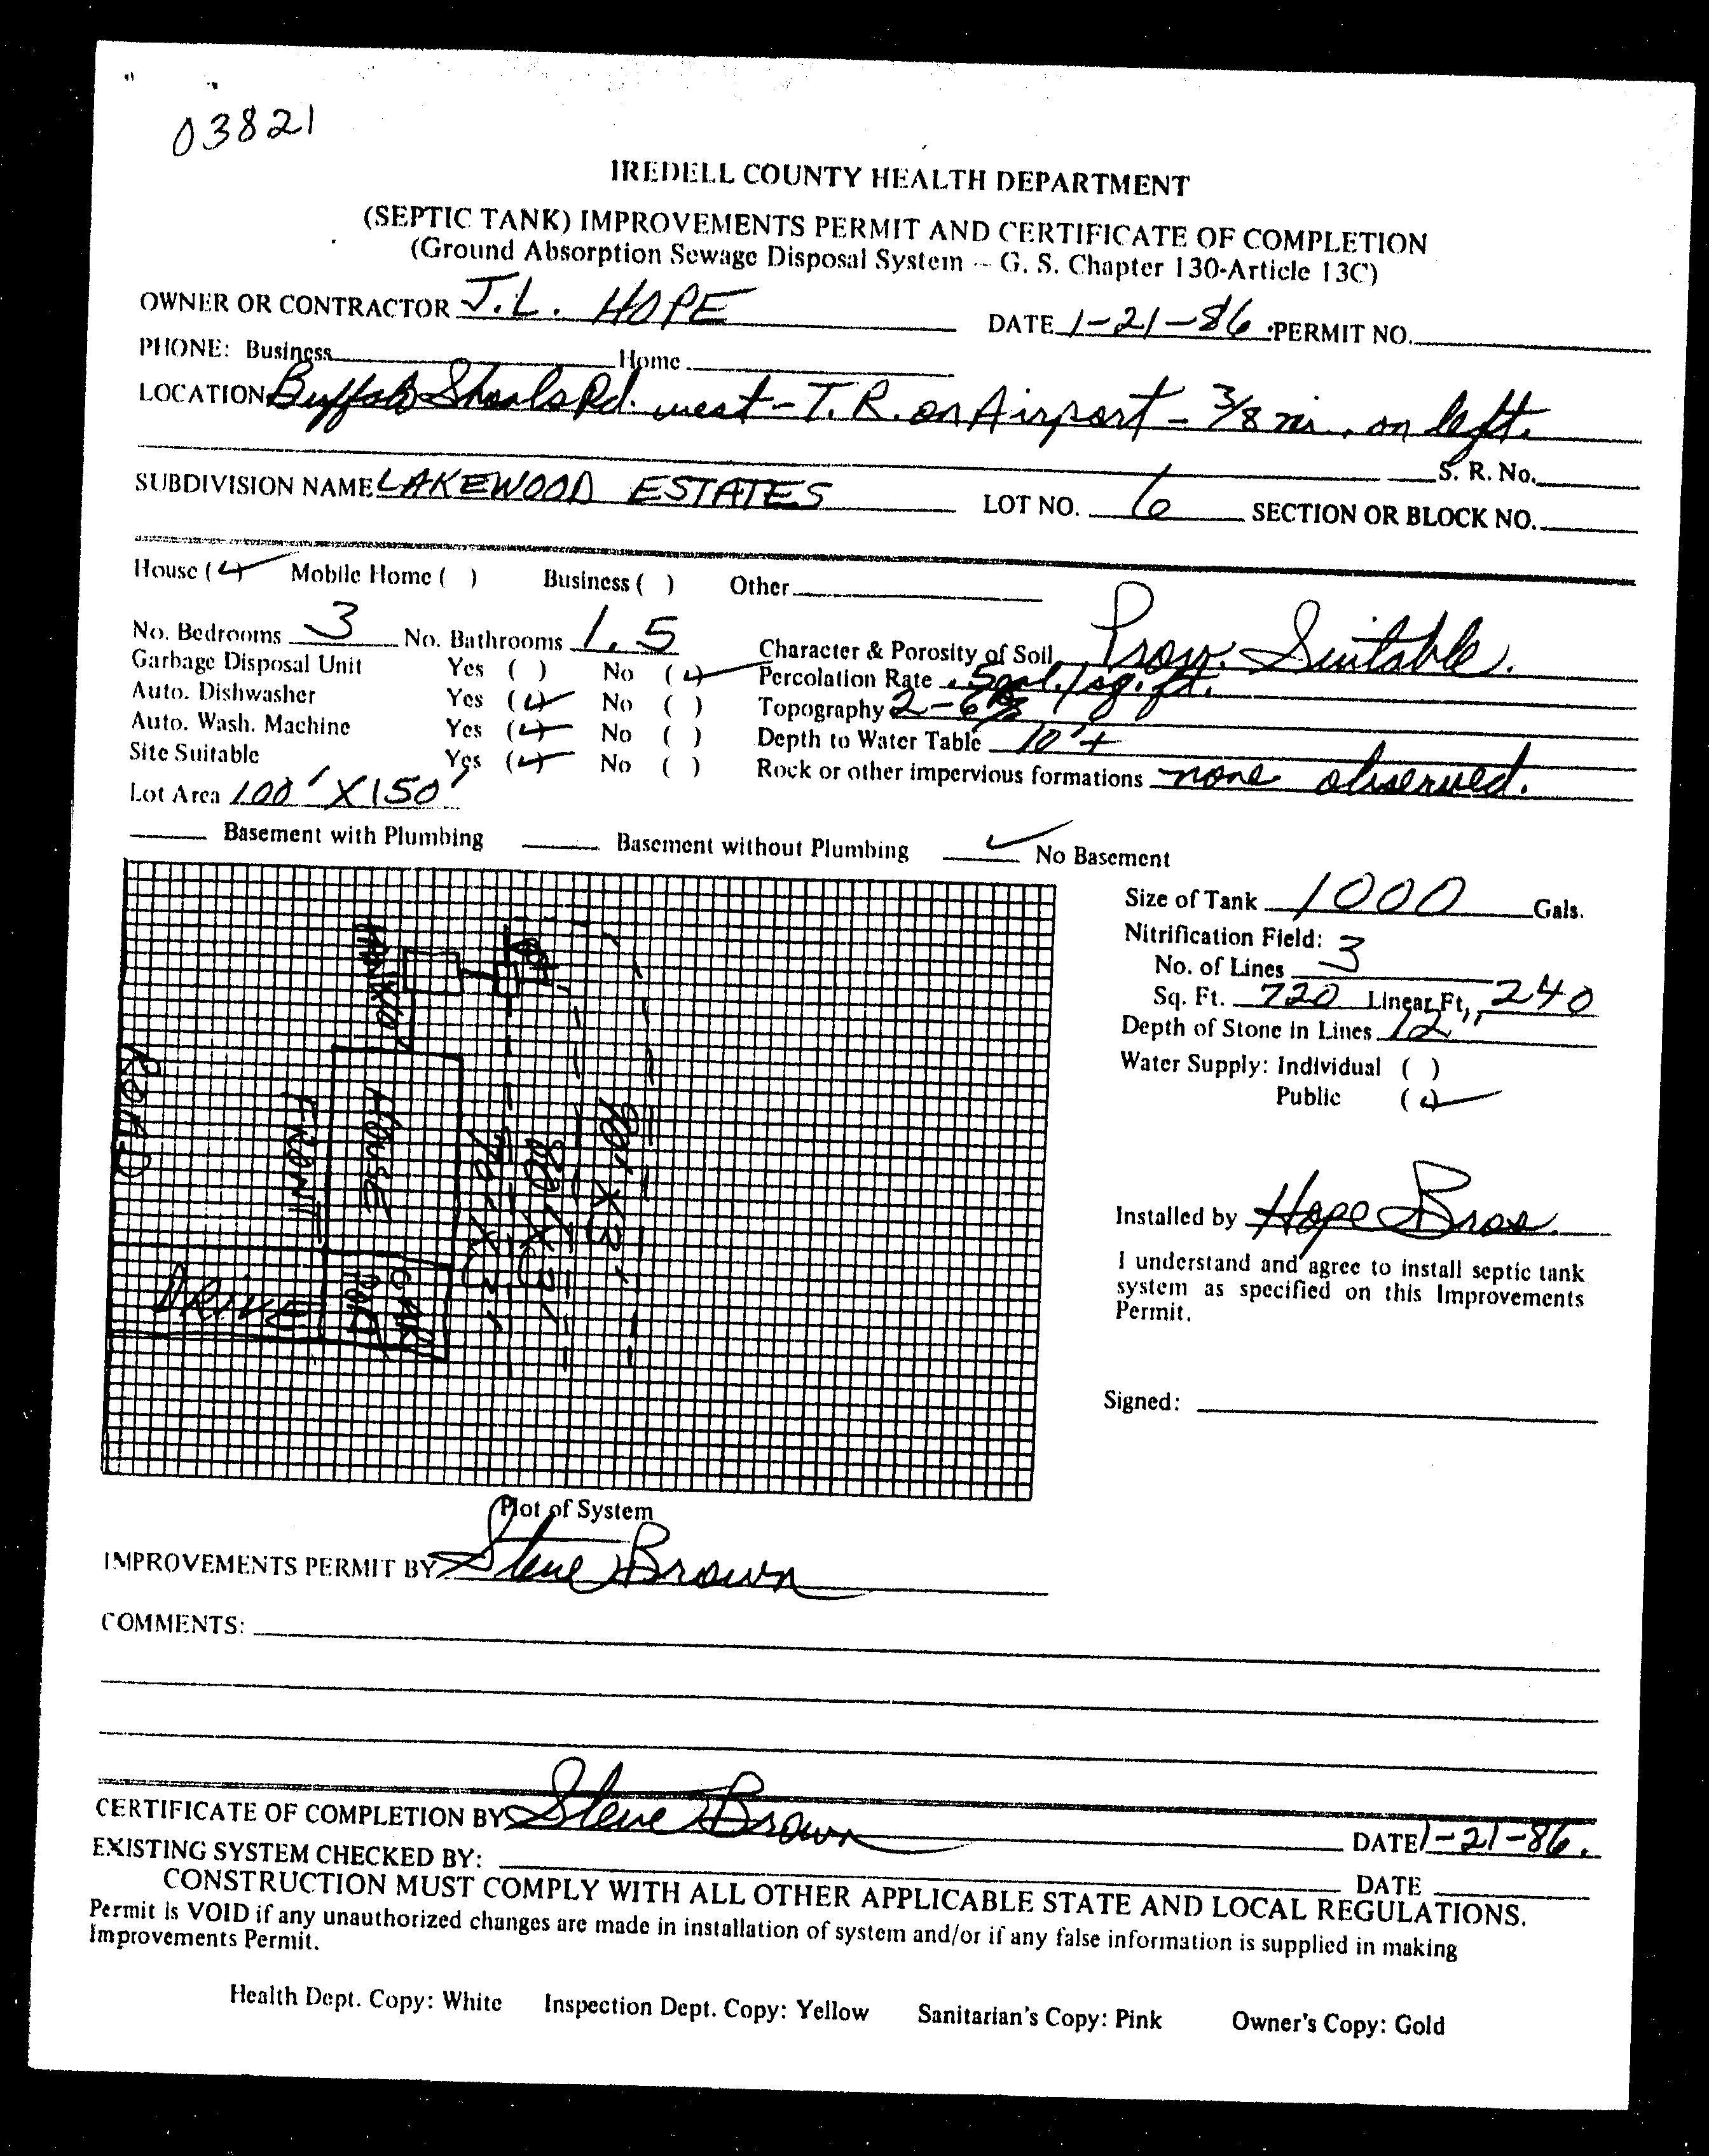 03821
IREDELL COUNTY HEALTH DEPARTMENT
(SEPTIC TANK) IMPROVEMENTS PERMIT AND CERTIFICATE OF COMPLETION
(Ground Absorption Sewage Disposal System -- G. S. Chapter 130-Article 13C)
OWNER OR CONTRACTOR J.L. HOPE DATE 1-21-86 PERMIT NO.
PHONE: Business Home
LOCATION Buffalo Shoals Rd. west - T.R. on Airport - 3/8 mi. on left.
S. R. No.
SUBDIVISION NAME LAKEWOOD ESTATES LOT NO. 6 SECTION OR BLOCK NO.
House (✓) Mobile Home ( ) Business ( ) Other
No. Bedrooms 3 No. Bathrooms 1.5 Character & Porosity of Soil Prov. Suitable.
Garbage Disposal Unit Yes ( ) No (✓) Percolation Rate .5gal./sq.ft.
Auto. Dishwasher Yes (✓) No ( ) Topography 2-6%
Auto. Wash. Machine Yes (✓) No ( ) Depth to Water Table 10'+
Site Suitable Yes (✓) No ( ) Rock or other impervious formations none observed.
Lot Area 100' X 150'
Basement with Plumbing Basement without Plumbing ✓ No Basement
Size of Tank 1000 Gals.
Nitrification Field:
No. of Lines 3
Sq. Ft. 720 Linear Ft. 240
Depth of Stone in Lines 12"
Water Supply: Individual ( )
Public (✓)
ROAD
FRONT
HOUSE
DRIVE
CAR
PORT
80' X 3'
80' X 3'
Installed by Hope Bros.
I understand and agree to install septic tank
system as specified on this Improvements
Permit.
Signed:
Plot of System
IMPROVEMENTS PERMIT BY Steve Brown
COMMENTS:
CERTIFICATE OF COMPLETION BY Steve Brown DATE 1-21-86.
EXISTING SYSTEM CHECKED BY: DATE
CONSTRUCTION MUST COMPLY WITH ALL OTHER APPLICABLE STATE AND LOCAL REGULATIONS.
Permit is VOID if any unauthorized changes are made in installation of system and/or if any false information is supplied in making
Improvements Permit.
Health Dept. Copy: White Inspection Dept. Copy: Yellow Sanitarian's Copy: Pink Owner's Copy: Gold